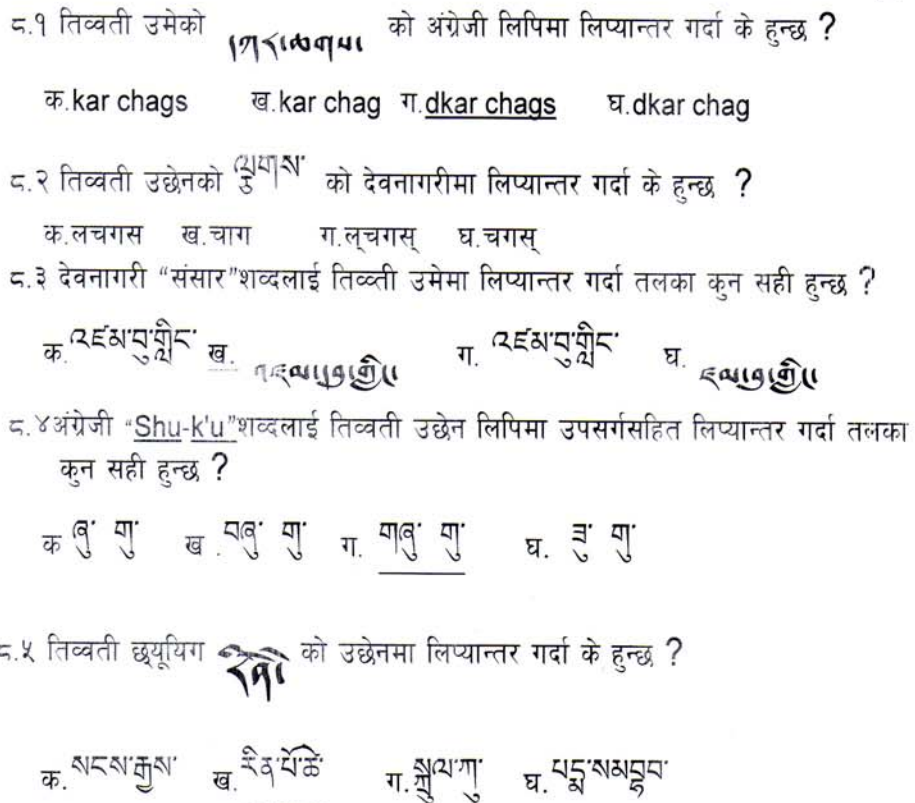 ८.१ तिव्वती उमेको को अंग्रेजी लिपिमा लिप्यान्तर गर्दा के हुन्छ ?
क.kar chags ख.kar chag ग.dkar chags घ.dkar chag
८.२ तिव्वती उछेनको ལྕགས་ को देवनागरीमा लिप्यान्तर गर्दा के हुन्छ ?
क.लचगस ख.चाग ग.ल्चगस् घ.चगस्
८.३ देवनागरी “संसार”शव्दलाई तिव्व्ती उमेमा लिप्यान्तर गर्दा तलका कुन सही हुन्छ ?
क. འཛམ་བུ་གླིང་ ख. ग. འཛམ་བུ་གླིང་ घ.
८.४अंग्रेजी “Shu-k'u”शव्दलाई तिव्वती उछेन लिपिमा उपसर्गसहित लिप्यान्तर गर्दा तलका
कुन सही हुन्छ ?
क ཞུ་ གུ་ ख . བཞུ་ གུ་ ग. གཞུ་ གུ་ घ. ཟུ་ གུ་
८.५ तिव्वती छ्यूयिग को उछेनमा लिप्यान्तर गर्दा के हुन्छ ?
क. སངས་རྒྱས་ ख. རིན་པོ་ཆེ་ ग. སྤྲུལ་ཀུ་ घ. པདྨ་སམབྷབ་